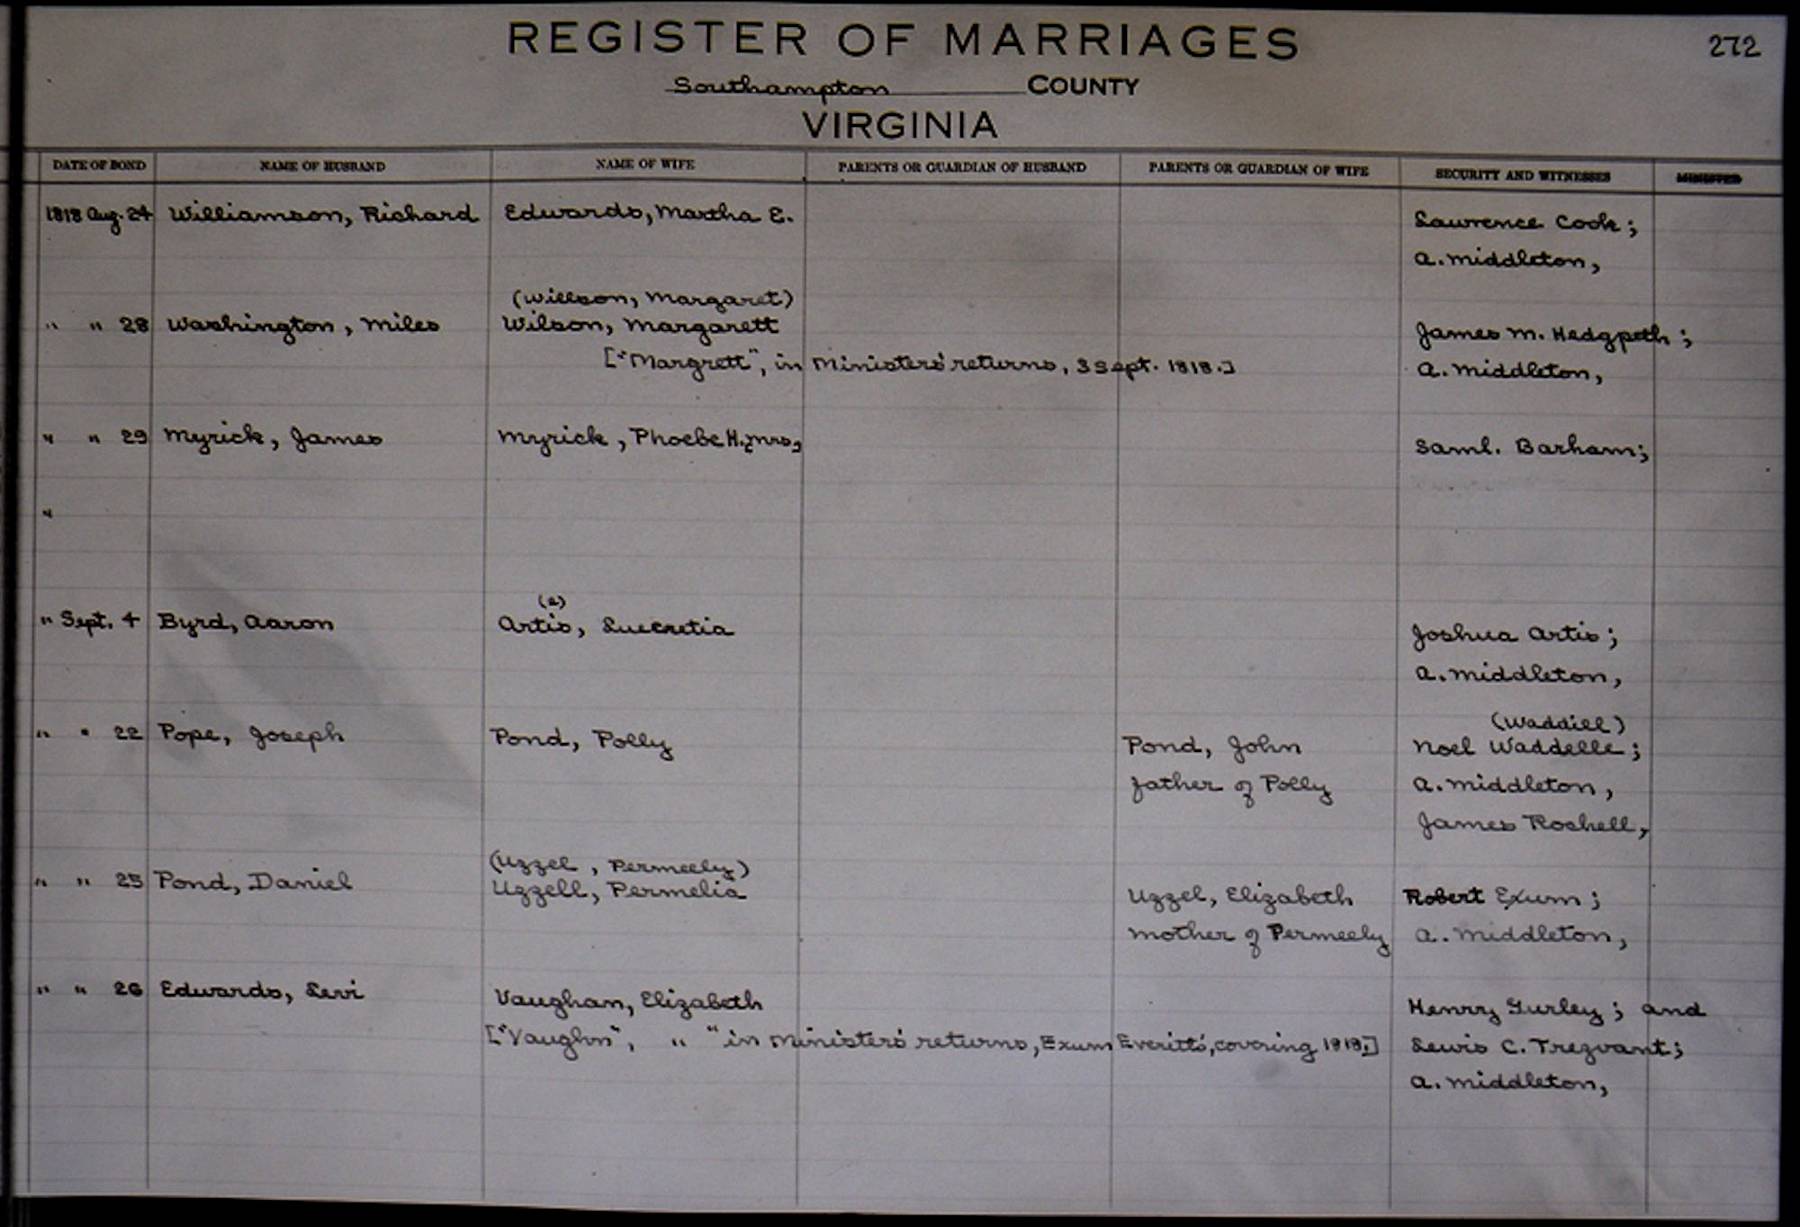 REGISTER OF MARRIAGES 272
Southampton COUNTY
VIRGINIA
DATE OF BOND NAME OF HUSBAND NAME OF WIFE PARENTS OR GUARDIAN OF HUSBAND PARENTS OR GUARDIAN OF WIFE SECURITY AND WITNESSES MINISTER
1818 Aug. 24 Williamson, Richard Edwards, Martha E. Lawrence Cook;
A. Middleton,
(Willson, Margaret)
" " 28 Washington, Miles Wilson, Margarett James M. Hedgpeth;
["Margrett", in Ministers' returns, 3 Sept. 1818.] A. Middleton,
" " 29 Myrick, James Myrick, Phoebe H. [Mrs.] Saml. Barham;
"
(a)
" Sept. 4 Byrd, Aaron Artis, Lucretia Joshua Artis;
A. Middleton,
(Waddill)
" " 22 Pope, Joseph Pond, Polly Pond, John Noel Waddelle;
father of Polly A. Middleton,
James Rochell,
(Uzzel, Permeely)
" " 25 Pond, Daniel Uzzell, Permelia Uzzel, Elizabeth Robert Exum;
mother of Permeely A. Middleton,
" " 26 Edwards, Levi Vaughan, Elizabeth Henry Gurley; and
["Vaughn", " " in Ministers' returns, Exum Everitts', covering 1818.] Lewis C. Trezvant;
A. Middleton,